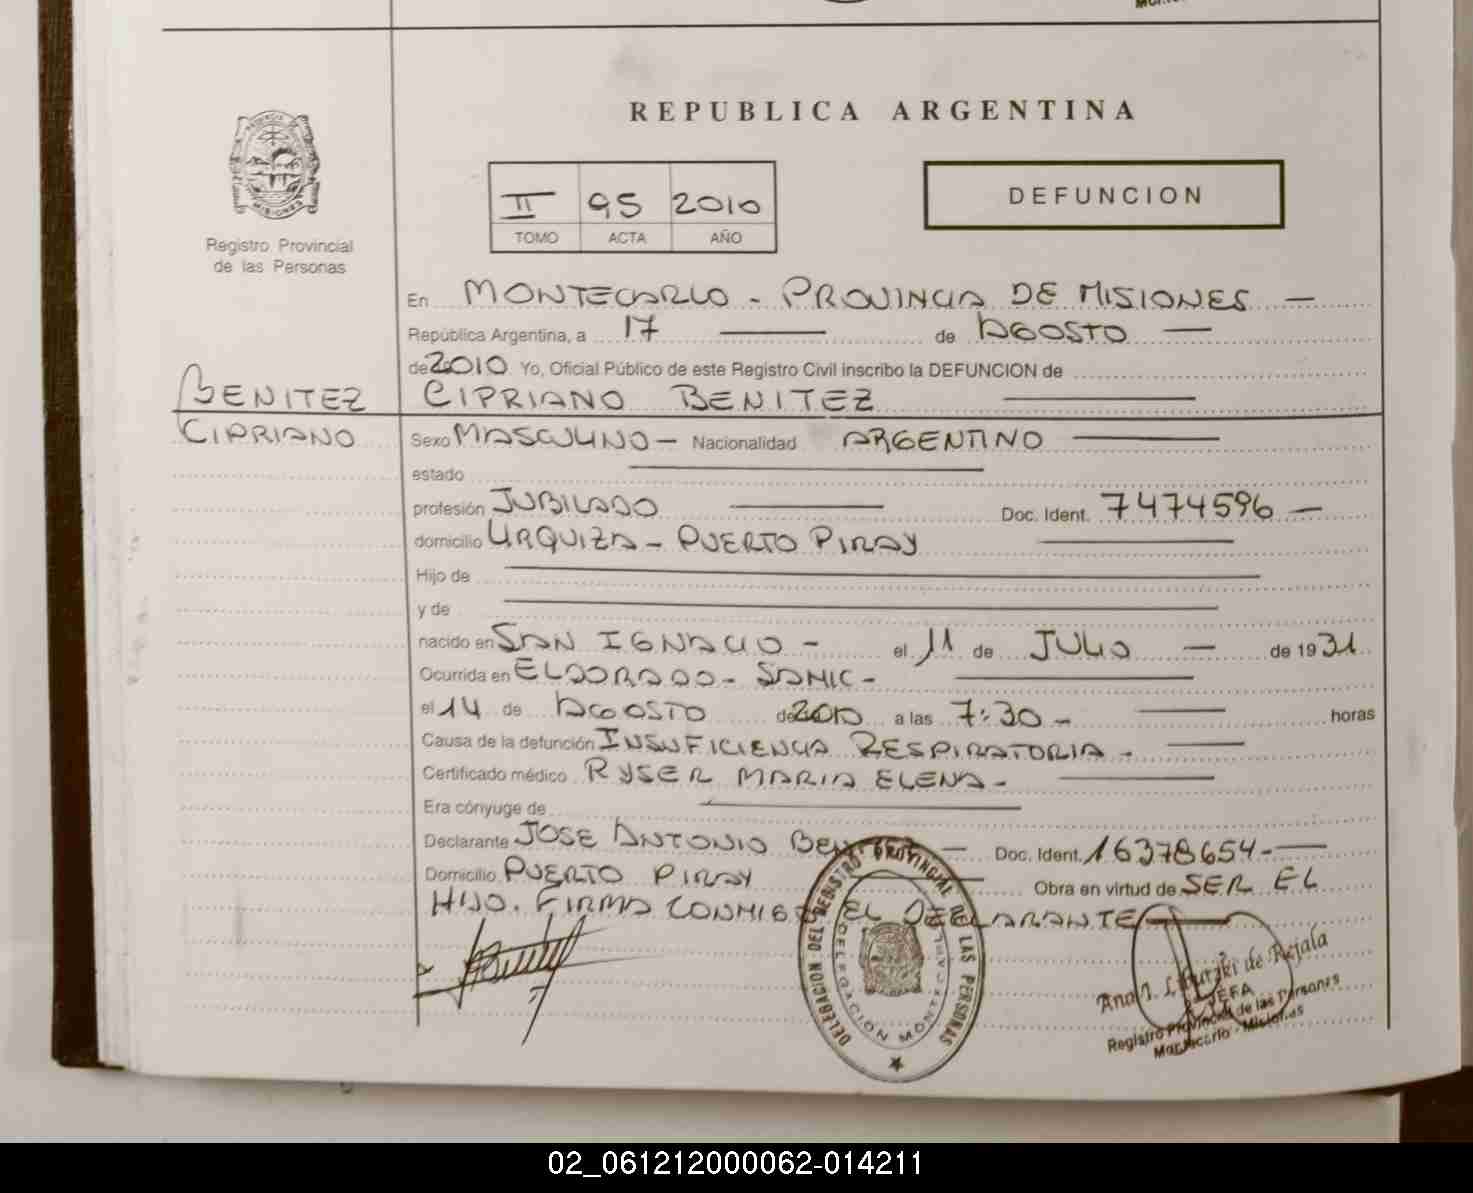 REPUBLICA ARGENTINA
DEFUNCION
II 95 2010
TOMO ACTA AÑO
MISIONES
Registro Provincial
de las Personas
En MONTECARLO - PROVINCIA DE MISIONES —
República Argentina, a 17 — de AGOSTO —
de 2010 Yo, Oficial Público de este Registro Civil inscribo la DEFUNCION de
BENITEZ
CIPRIANO
CIPRIANO BENITEZ —
Sexo MASCULINO — Nacionalidad ARGENTINO —
estado —
profesión JUBILADO — Doc. Ident. 7474596 —
domicilio URQUIZA - PUERTO PIRAY —
Hijo de —
y de —
nacido en SAN IGNACIO - el 11 de JULIO — de 1931
Ocurrida en ELDORADO - SAMIC - —
el 14 de AGOSTO de 2010 a las 7:30 - — horas
Causa de la defunción INSUFICIENCIA RESPIRATORIA - —
Certificado médico RYSER MARIA ELENA - —
Era cónyuge de —
Declarante JOSE ANTONIO BENITEZ — Doc. Ident. 16378654 - —
Domicilio PUERTO PIRAY — Obra en virtud de SER EL
HIJO. FIRMA CONMIGO EL DECLARANTE —
DELEGACION DEL REGISTRO PROVINCIAL DE LAS PERSONAS
DELEGACIÓN MONTECARLO
Ana de Rejala
JEFA
Registro Provincial de las Personas
Montecarlo - Misiones
02_061212000062-014211